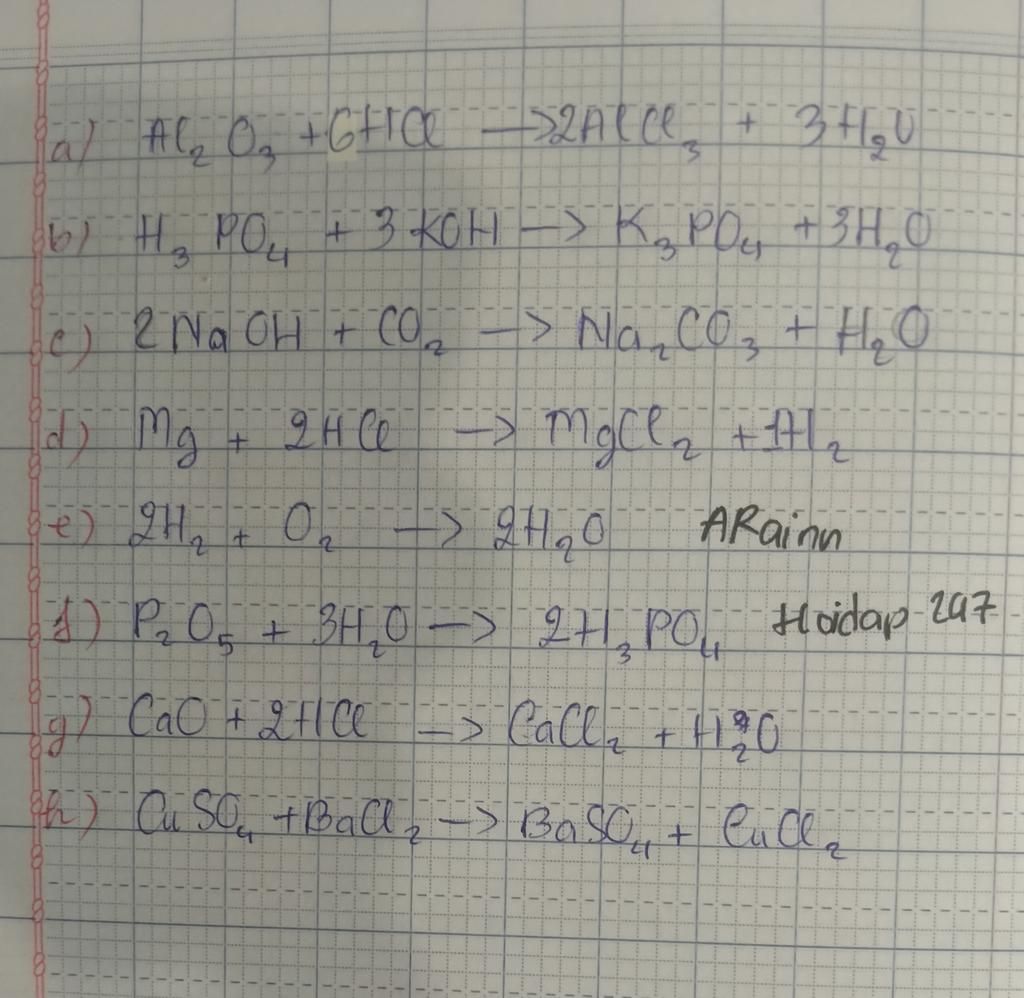 a) Al₂O₃ + 6HCl → 2AlCl₃ + 3H₂O
b) H₃PO₄ + 3KOH → K₃PO₄ + 3H₂O
c) 2NaOH + CO₂ → Na₂CO₃ + H₂O
d) Mg + 2HCl → MgCl₂ + 1H₂
e) 2H₂ + O₂ → 2H₂O ARainn
f) P₂O₅ + 3H₂O → 2H₃PO₄ Hoidap 247
g) CaO + 2HCl → CaCl₂ + H₂O
h) CuSO₄ + BaCl₂ → BaSO₄ + CuCl₂